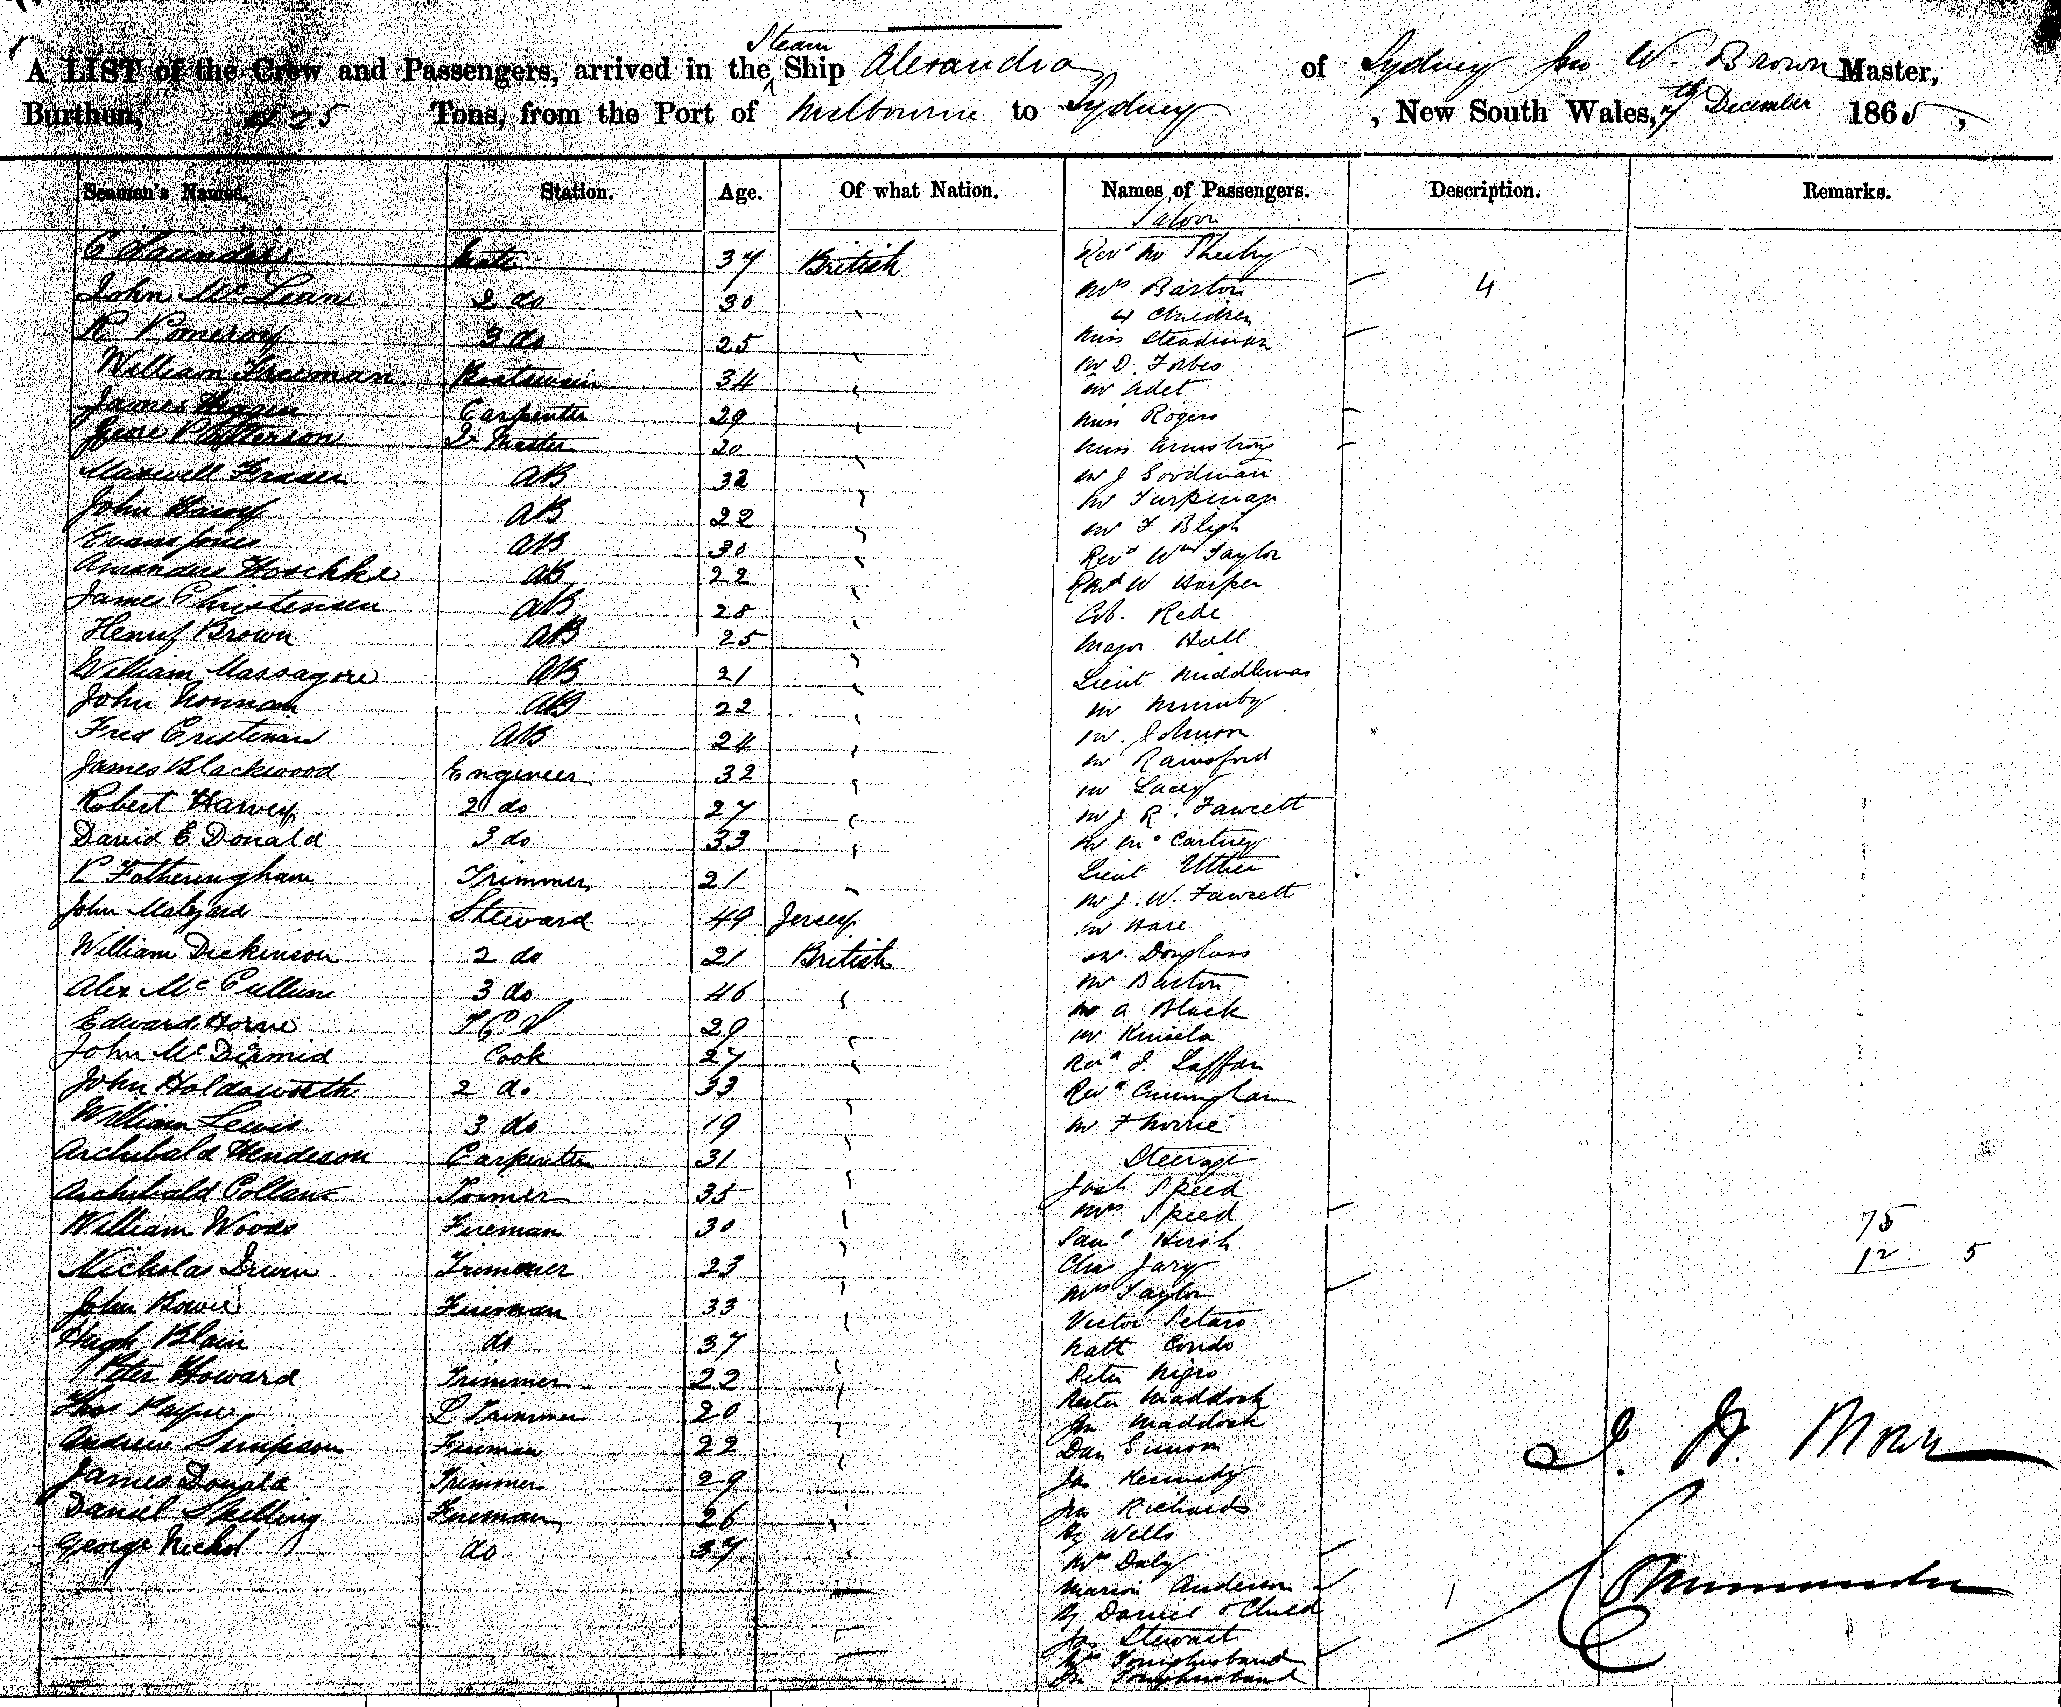 Steam
A LIST of the Crew and Passengers, arrived in the Ship Alexandra of Sydney Jno W. Brown Master,
Burthen, 425 Tons, from the Port of Melbourne to Sydney , New South Wales, 7th December 1865,
Seamen's Names. Station. Age. Of what Nation. Names of Passengers. Description. Remarks.
Saloon
C Saunders Mate 37 British
John Mc Leane 2 do 30
R Pomeroy 3 do 25
William Freeman Boatswain 34
James Carpenter 29
Patterson Qr Master 20
Maxwell Fraser AB 32
John AB 22
Evans Jones AB 30
Amandus Hoschke AB 22
James Christensen AB 28
Henry Brown AB 25
William Massagore AB 21
John Norman AB 22
Fred Cristenan AB 24
James Blackwood Engineer 32
Robert Harvey 2 do 27
David E Donald 3 do 33
P Fotheringham Trimmer 21
John Malzard Steward 49 Jersey
William Dickinson 2 do 21 British
Alex Mc Cullum 3 do 46
Edward Horne 29
John Mc Diarmid Cook 27
John Holdsworth 2 do 33
William Lewis 3 do 19
Archibald Henderson Carpenter 31
Archibald 35
William Woods Fireman 30
Nicholas Irwin Trimmer 23
John Bower Fireman 33
Hugh Blain do 37
Peter Howard Trimmer 22
Thos Payne Trimmer 20
Andrew Simpson Fireman 22
James Donald Trimmer 29
Daniel Skelling Fireman 26
George Nichol do 37
Revd Mr Sheehy
Mrs Barton 4
4 Children
Miss Steadman
Mr D. Forbes
Mr Adet
Miss Rogers
Miss Armstrong
Mr J Goodman
Mr
Mr F Bligh
Revd Wm Taylor
Revd W Harper
Col. Rede
Major Hall
Lieut Middlemas
Mr
Mr. Johnson
Mr Rainsford
Mr Lacey
Mr J. R. Fawcett
Mr Mc Cartney
Lieut Uther
Mr J. W. Fawcett
Mr Hare
Mr. Douglass
Mr Barton
Mr A Black
Mr Kinsela
Revd J. Laffan
Revd Cunningham
Mr F Norrie
Steerage
Josh Speed
Mrs Speed
Saml Hirsh
Chas Jary
Mrs Taylor
Victor Petaro
Natt Condo
Peter Nigro
Maddock
Jno Maddock
Dan
Jas Kennedy
Jno Richards
Hy Wells
Mrs Daly
Marion Anderson
Daniel & Child 1
Jas Stewart
Mrs Younghusband
Jno Younghusband
75
12 5
J. W. Brown
Commander